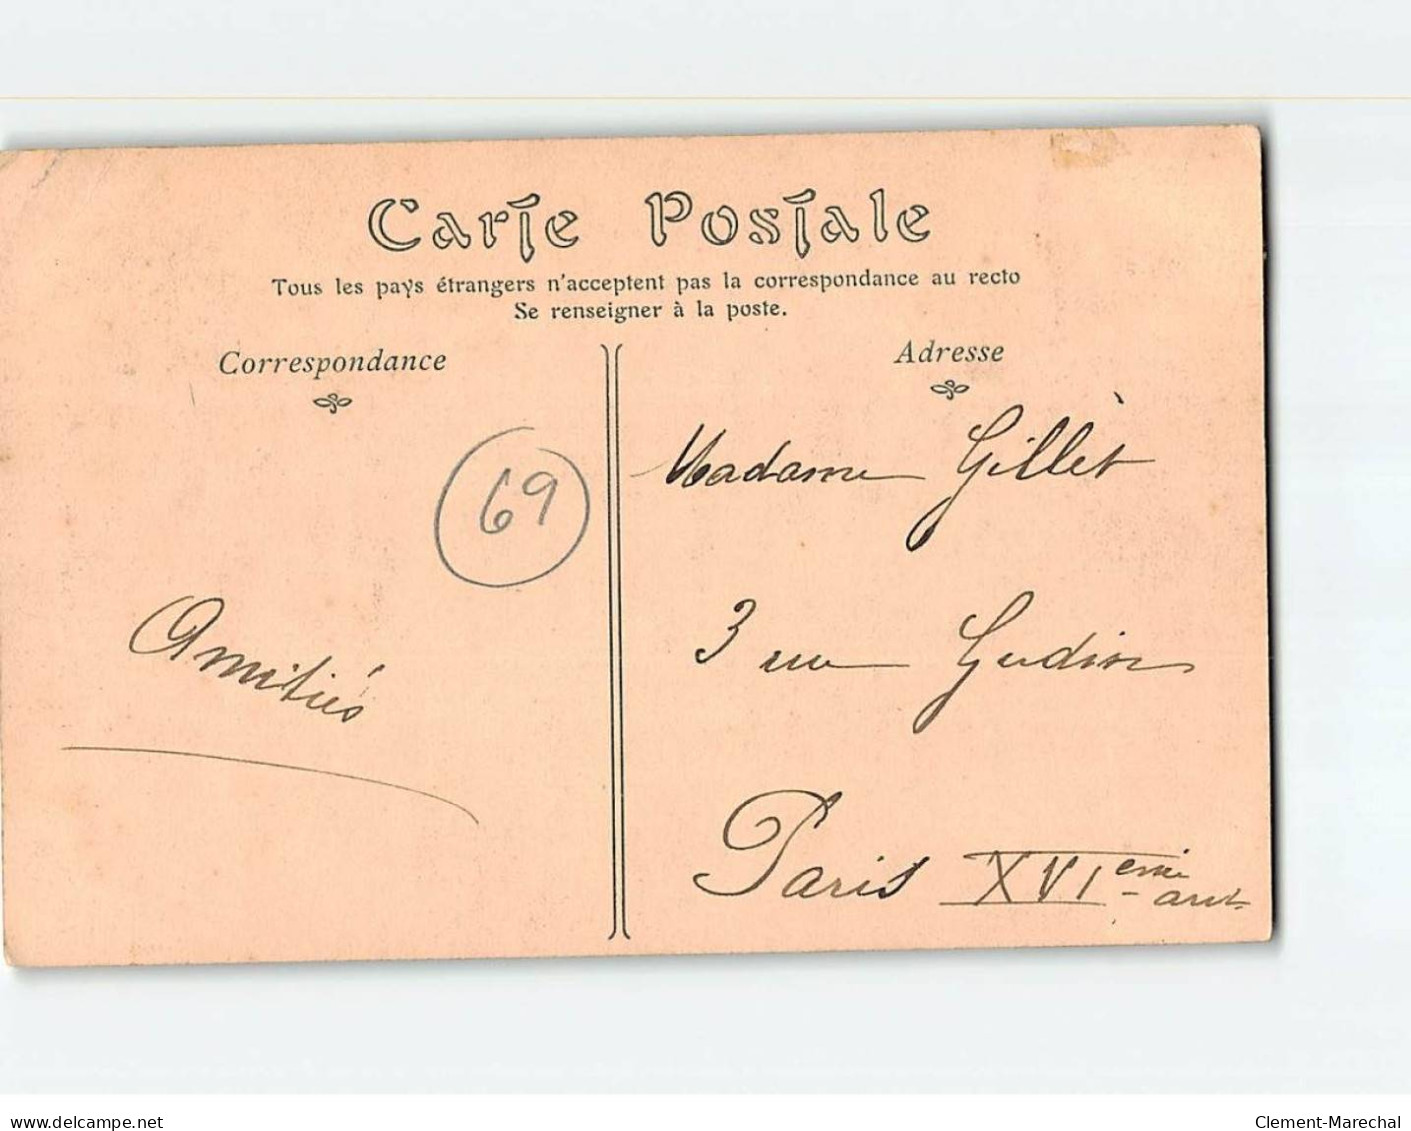 Carte Postale
Tous les pays étrangers n'acceptent pas la correspondance au recto
Se renseigner à la poste.
Correspondance
Adresse
69
Amitiés
Madame Gillèt
3 rue Gudin
Paris XVI ème arrt
delcampe.net
Clement-Marechal